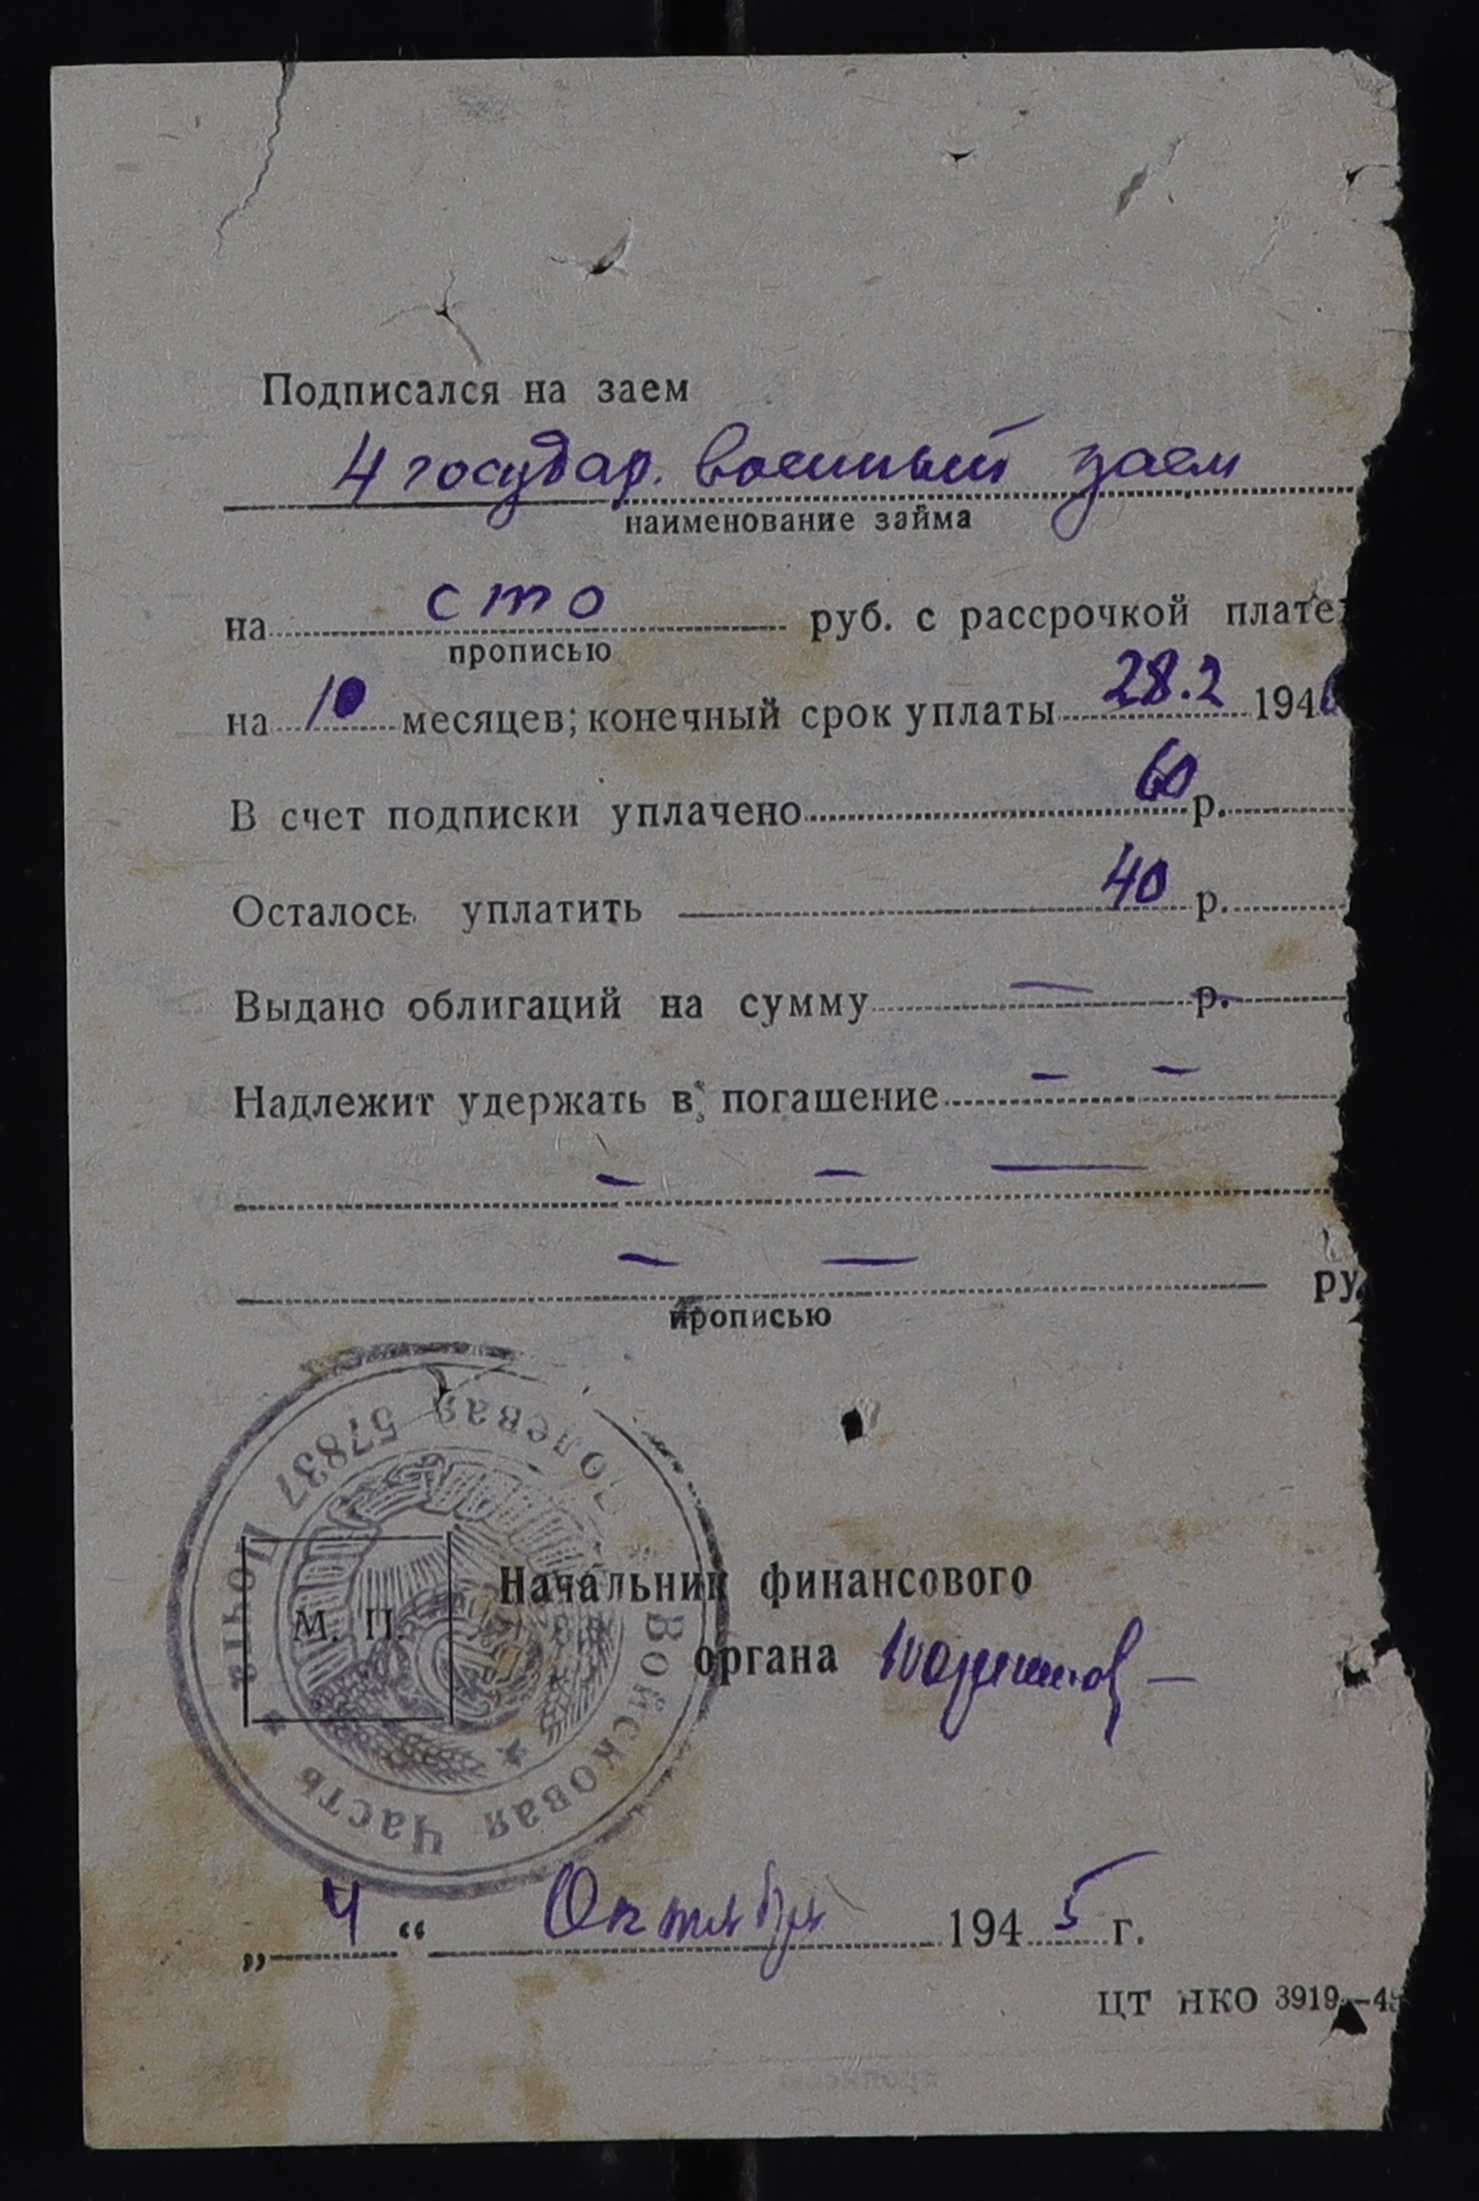 Подписался на заем
4 государ. военный заем
наименование займа
на сто руб. с рассрочкой плате
прописью
на 10 месяцев; конечный срок уплаты 28.2 1946
В счет подписки уплачено 60 р.
Осталось уплатить 40 р.
Выдано облигаций на сумму — р.
Надлежит удержать в погашение — —
— — —
— — ру
прописью
Войсковая Часть ★ Почта Полевая 57837
М. П.
Начальник финансового
органа
„4“ Октября 1945 г.
ЦТ НКО 3919—45